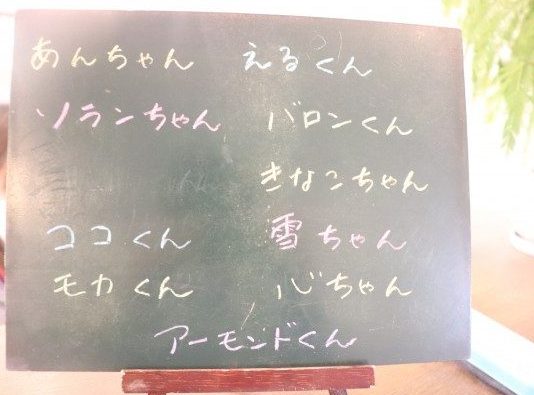 あんちゃん えるくん
ソランちゃん バロンくん
きなこちゃん
ココくん 雪ちゃん
モカくん 心ちゃん
アーモンドくん